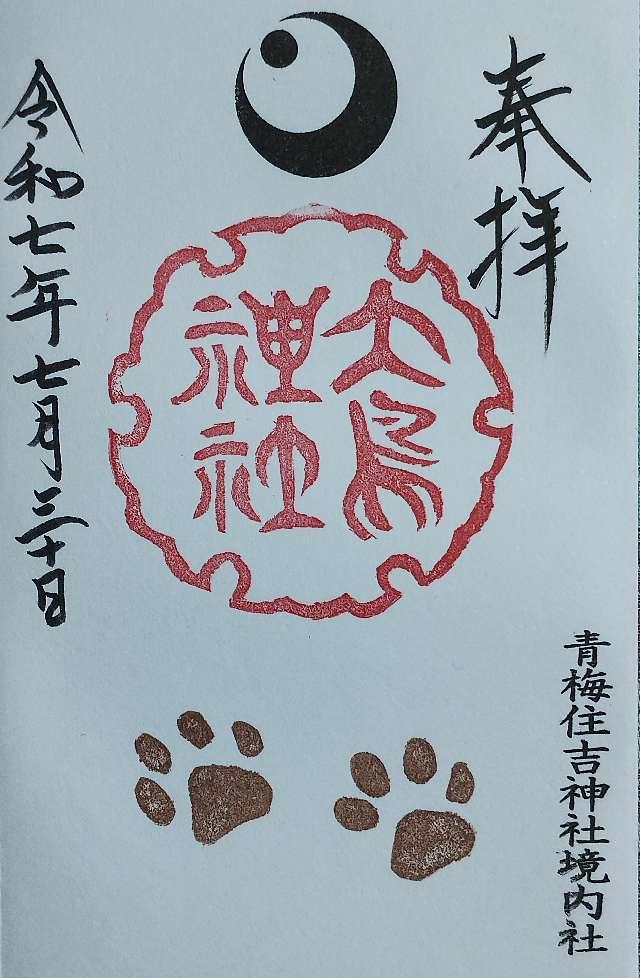 奉拝
大鳥
神社
青梅住吉神社境内社
令和七年七月三十日